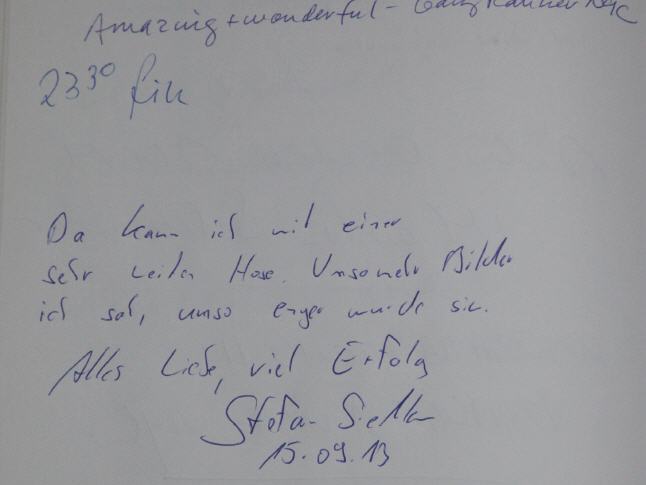 Amazing + wonderful -
23³⁰
Da kam ich mit einer
sehr weiten Hose. Umso mehr Bilder
ich sah, umso enger wurde sie.
Alles Liebe, viel Erfolg
Stefan
15.09.13